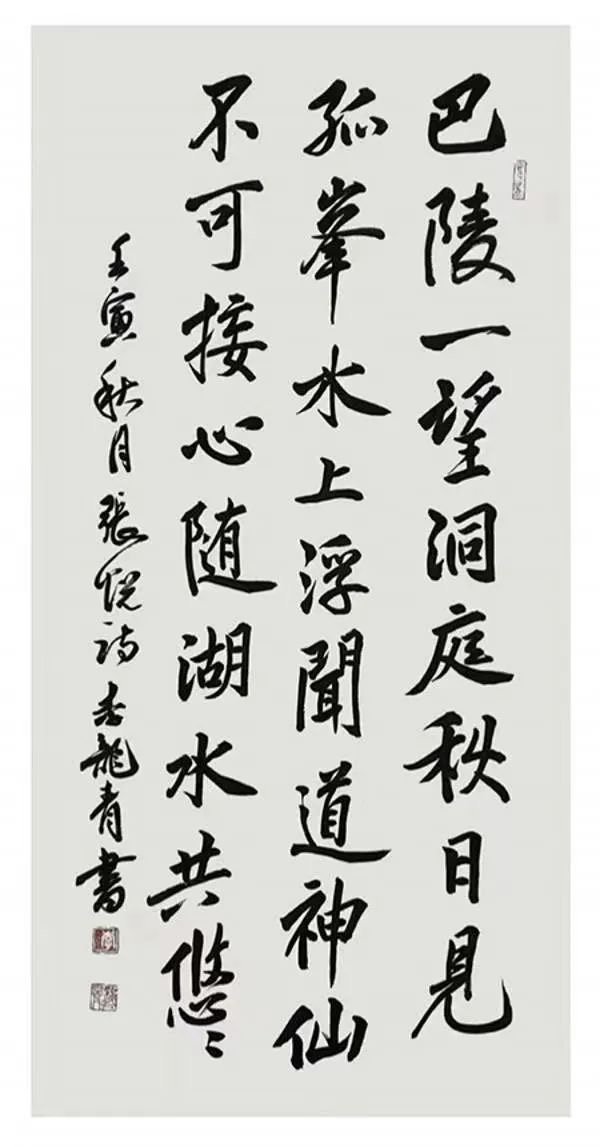 巴陵一望洞庭秋日見
孤峯水上浮聞道神仙
不可接心随湖水共悠〻
壬寅秋月張說詩李龍青書